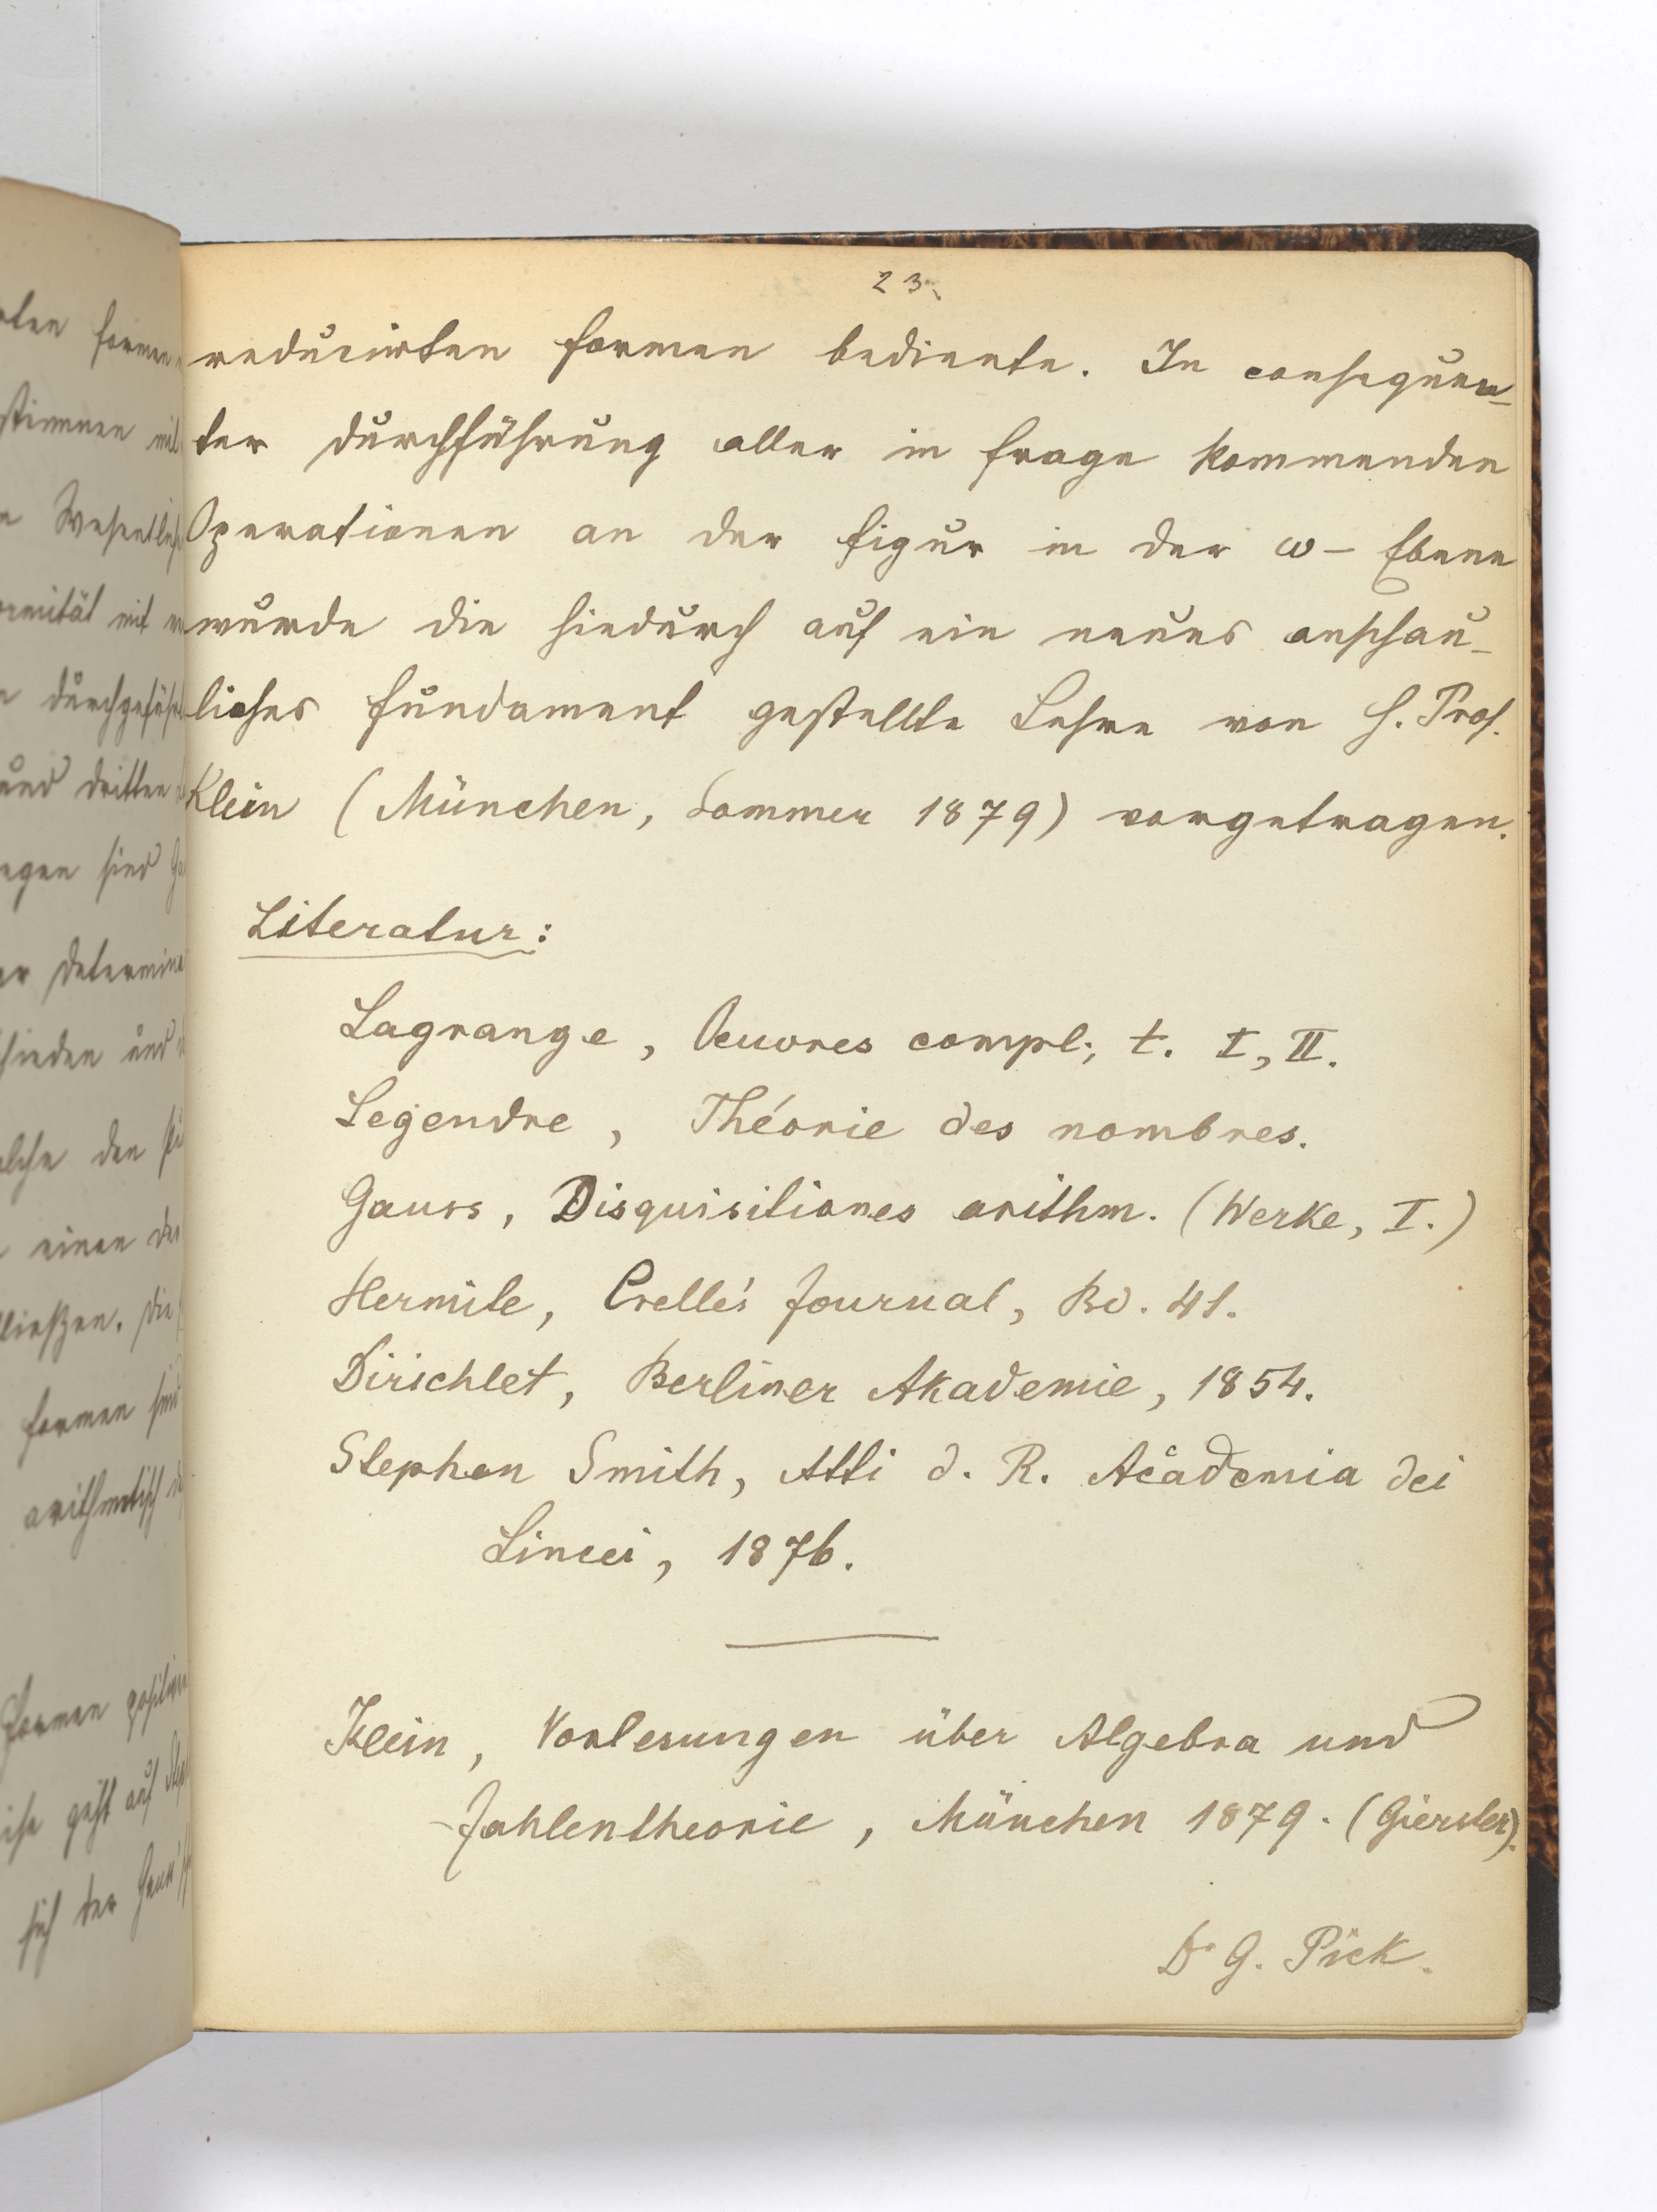 23.
reducirten Formen bediente. In consequen-
ter Durchführung aller in Frage kommenden
Operationen an der Figur in der ω-Ebene
wurde die hiedurch auf ein neues anschau-
liches Fundament gestellte Lehre von H. Prof.
Klein (München, Sommer 1879) vorgetragen.
Literatur:
Lagrange, Oeuvres compl., t. I, II.
Legendre, Théorie des nombres.
Gauss, Disquisitiones arithm. (Werke, I.)
Hermite, Crelle's Journal, Bd. 41.
Dirichlet, Berliner Akademie, 1854.
Stephen Smith, Atti d. R. Academia dei
Lincei, 1876.
Klein, Vorlesungen über Algebra und
Zahlentheorie, München 1879. (Gierster).
Dr G. Pick.